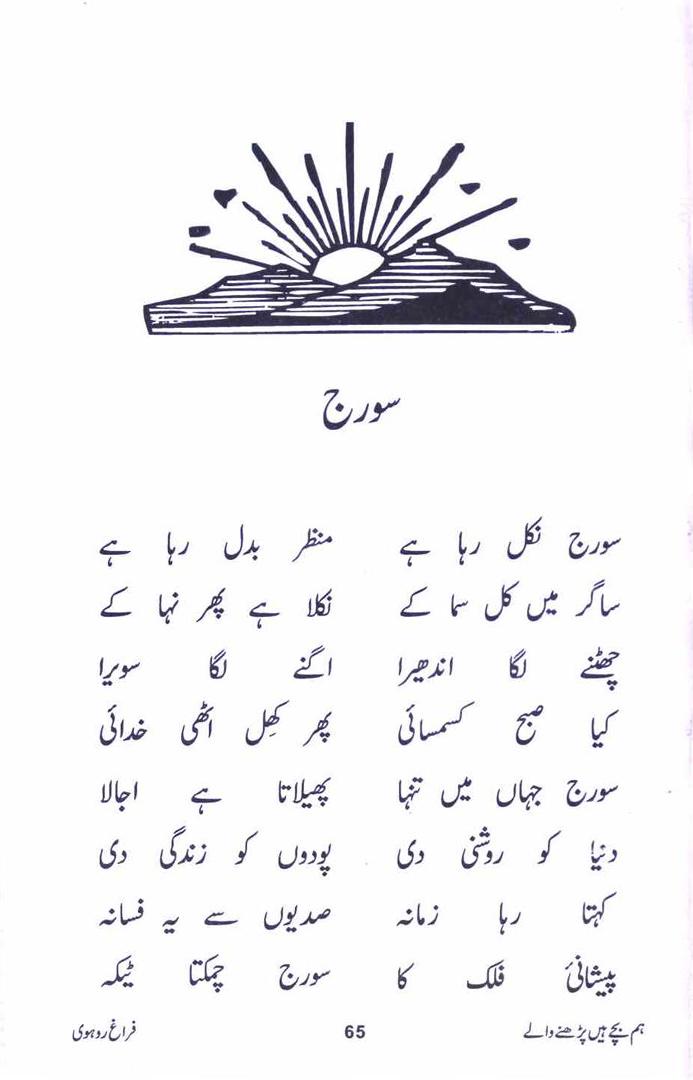 سورج
سورج نکل رہا ہے منظر بدل رہا ہے
ساگر میں کل سما کے نکلا ہے پھر نہا کے
چھٹنے لگا اندھیرا اگنے لگا سویرا
کیا صبح کسمسائی پھر کھِل اٹھی خدائی
سورج جہاں میں تنہا پھیلاتا ہے اجالا
دنیا کو روشنی دی پودوں کو زندگی دی
کہتا رہا زمانہ صدیوں سے یہ فسانہ
پیشانیٔ فلک کا سورج چمکتا ٹیکہ
ہم بچے ہیں پڑھنے والے 65 فراغ روہوی